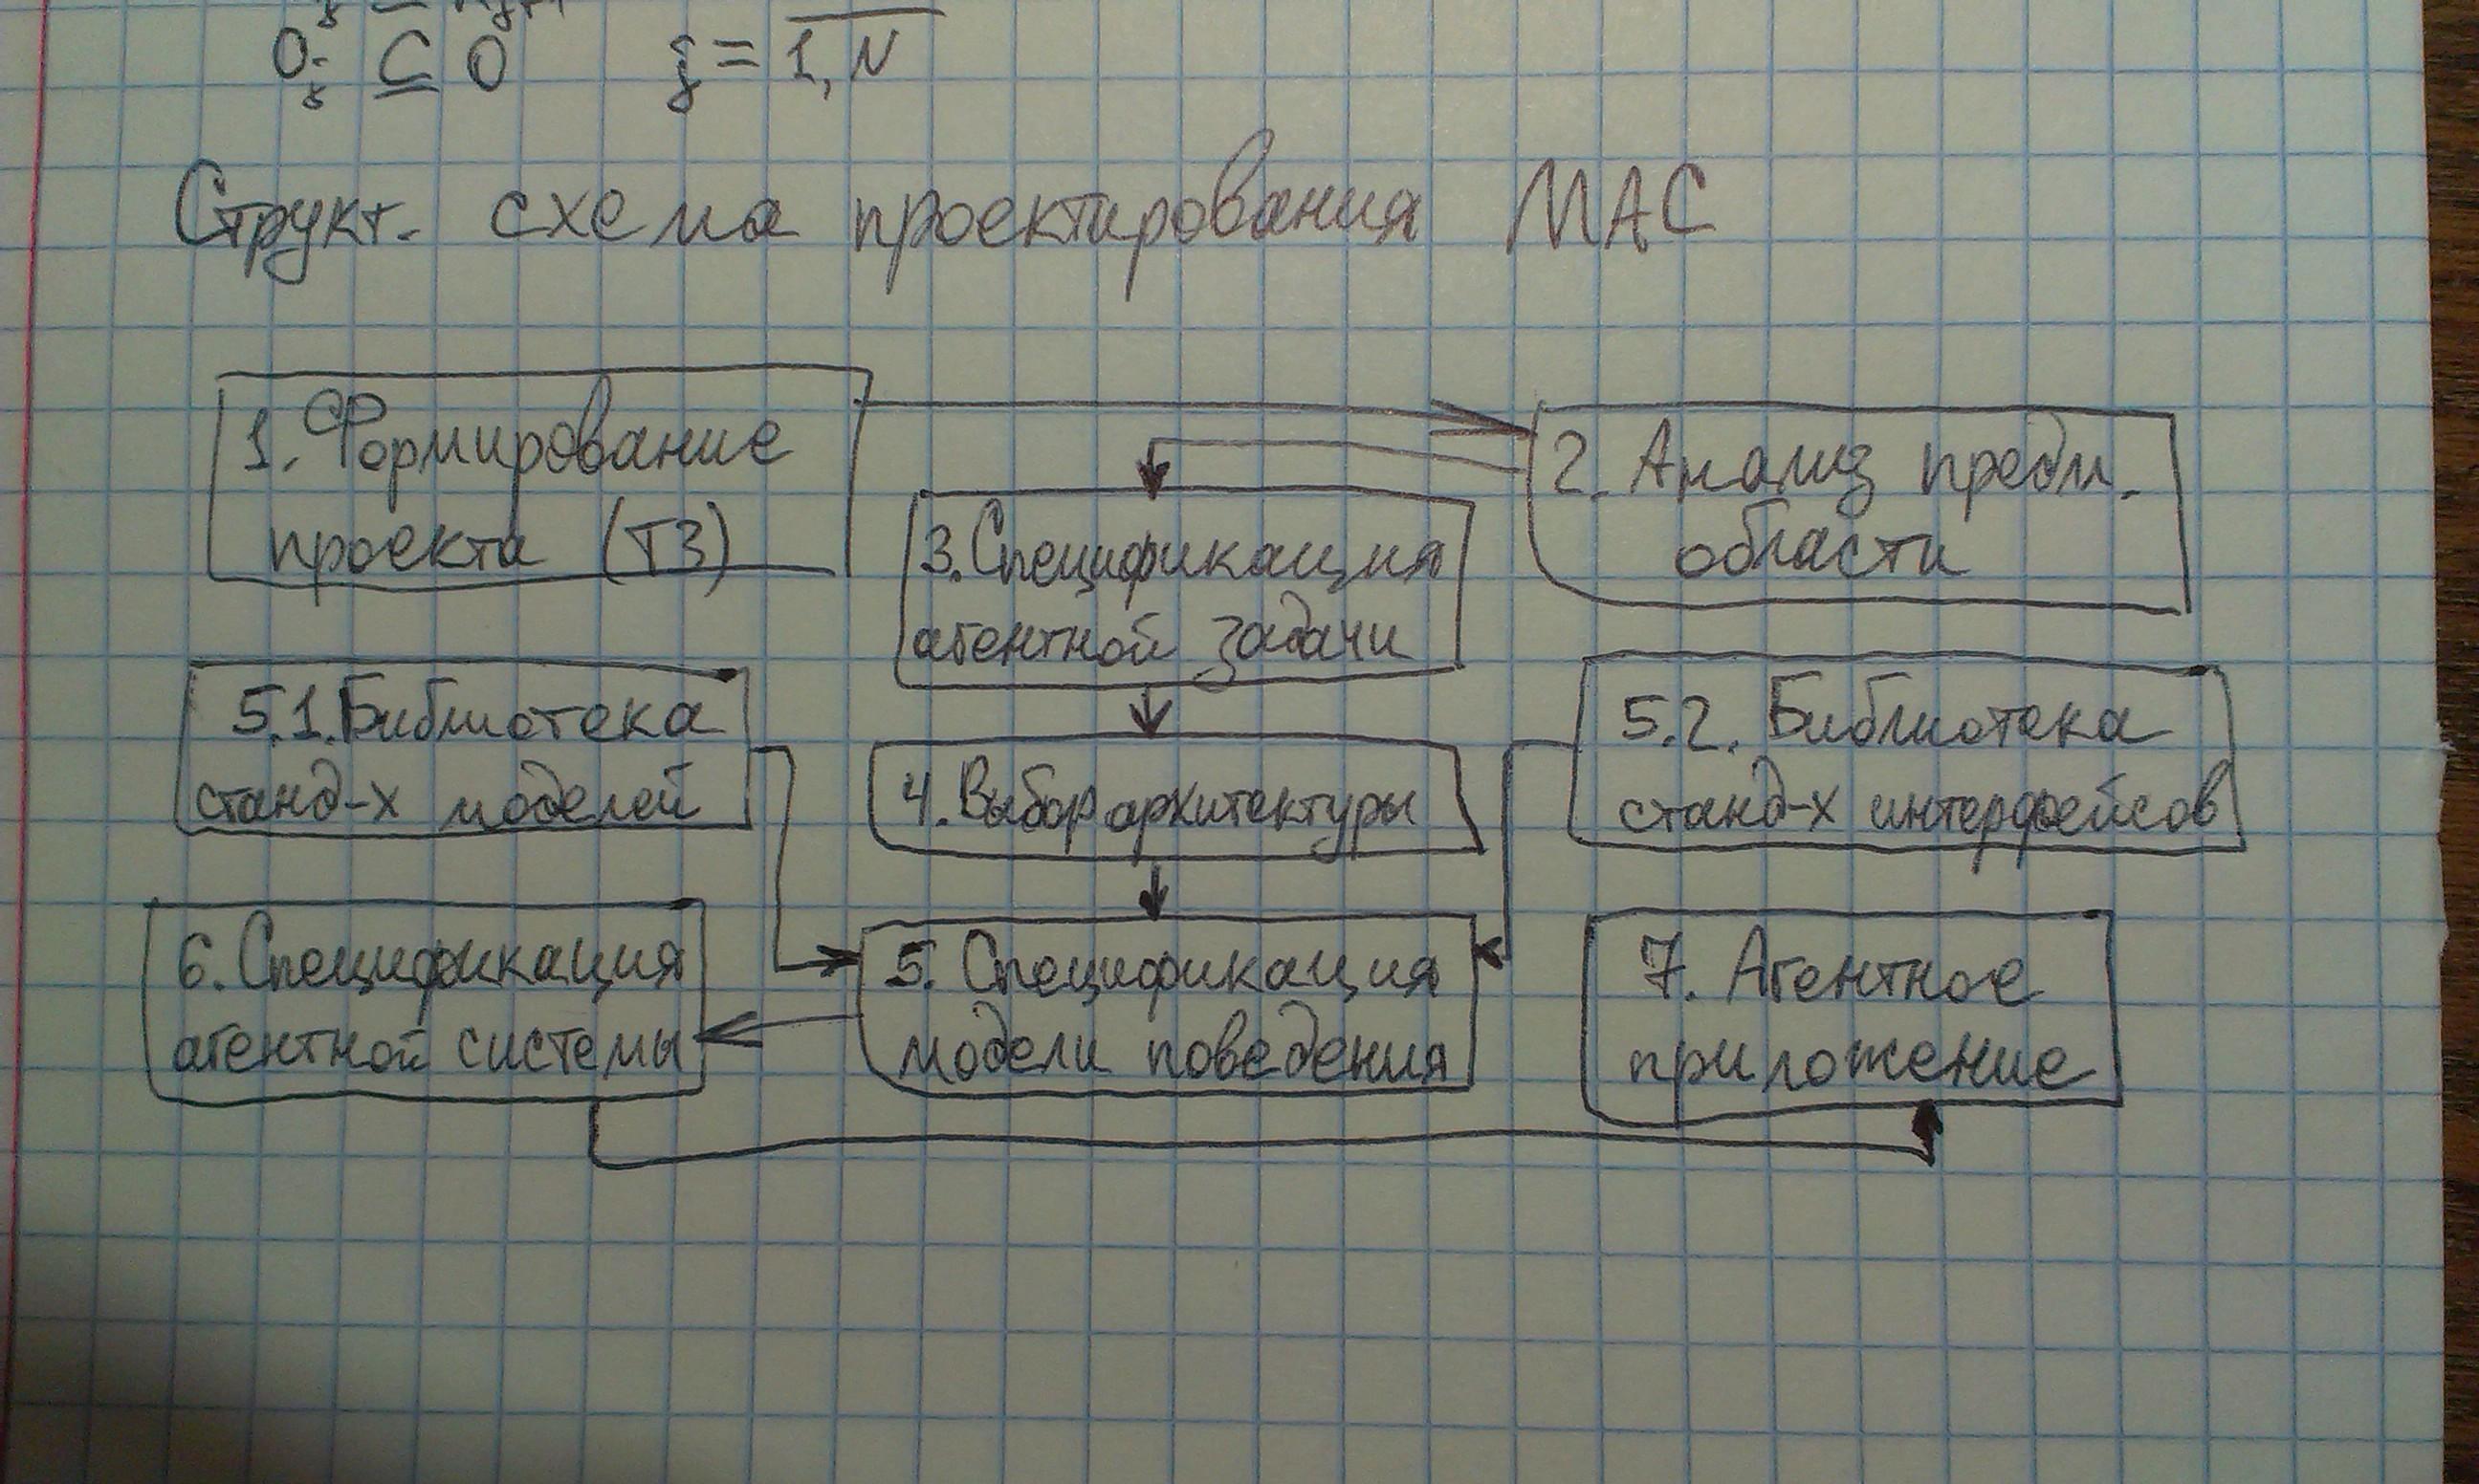 Oj ⊆ O j = 1, N
Структ. схема проектирования МАС
1. Формирование
проекта (ТЗ)
2. Анализ предм.
области
3. Спецификация
агентной задачи
5.1. Библиотека
станд-х моделей
4. Выбор архитектуры
5.2. Библиотека
станд-х интерфейсов
6. Спецификация
агентной системы
5. Спецификация
модели поведения
7. Агентное
приложение